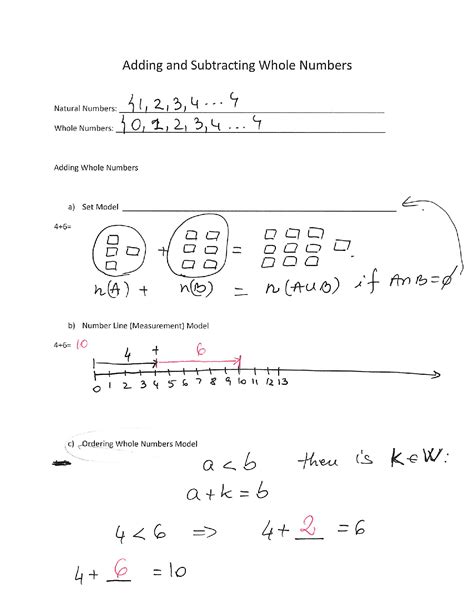 Adding and Subtracting Whole Numbers
Natural Numbers: {1, 2, 3, 4 ... }
Whole Numbers: {0, 1, 2, 3, 4 ... }
Adding Whole Numbers
a) Set Model
4+6=
+ =
n(A) + n(B) = n(A∪B) if A∩B=∅
b) Number Line (Measurement) Model
4+6= 10
4 + 6
0 1 2 3 4 5 6 7 8 9 10 11 12 13
c) Ordering Whole Numbers Model
a < b then is K∈W:
a + k = b
4 < 6 => 4 + 2 = 6
4 + 6 = 10